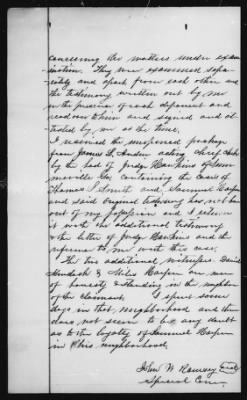 concerning the matters under exam-
ination. They were examined sepa-
rately and apart from each other and
the testimony written out by me
in the presence of each deponent and
read over to him and signed and at-
tested by me at the time,
I received the enclosed package
from James D. acting Chief Clerk
by the hand of Judge Hawkins of Sum-
merville Ga. containing the cases of
Thomas J Smith and Samuel Harper
and said original testimony has not been
out of my possession and I return
it with the additional testimony
& the letter of Judge Hawkins and the
reference to me with this case.
The two additional witnesses Daniel
& Miles Harper are men
of honesty & standing in the neighbor
of the claimant. I spent some
days in that neighborhood and there
does not seem to be any doubt
as to the loyalty of Samuel Harper
in this neighborhood
John W Ramsey Seal
Special Com